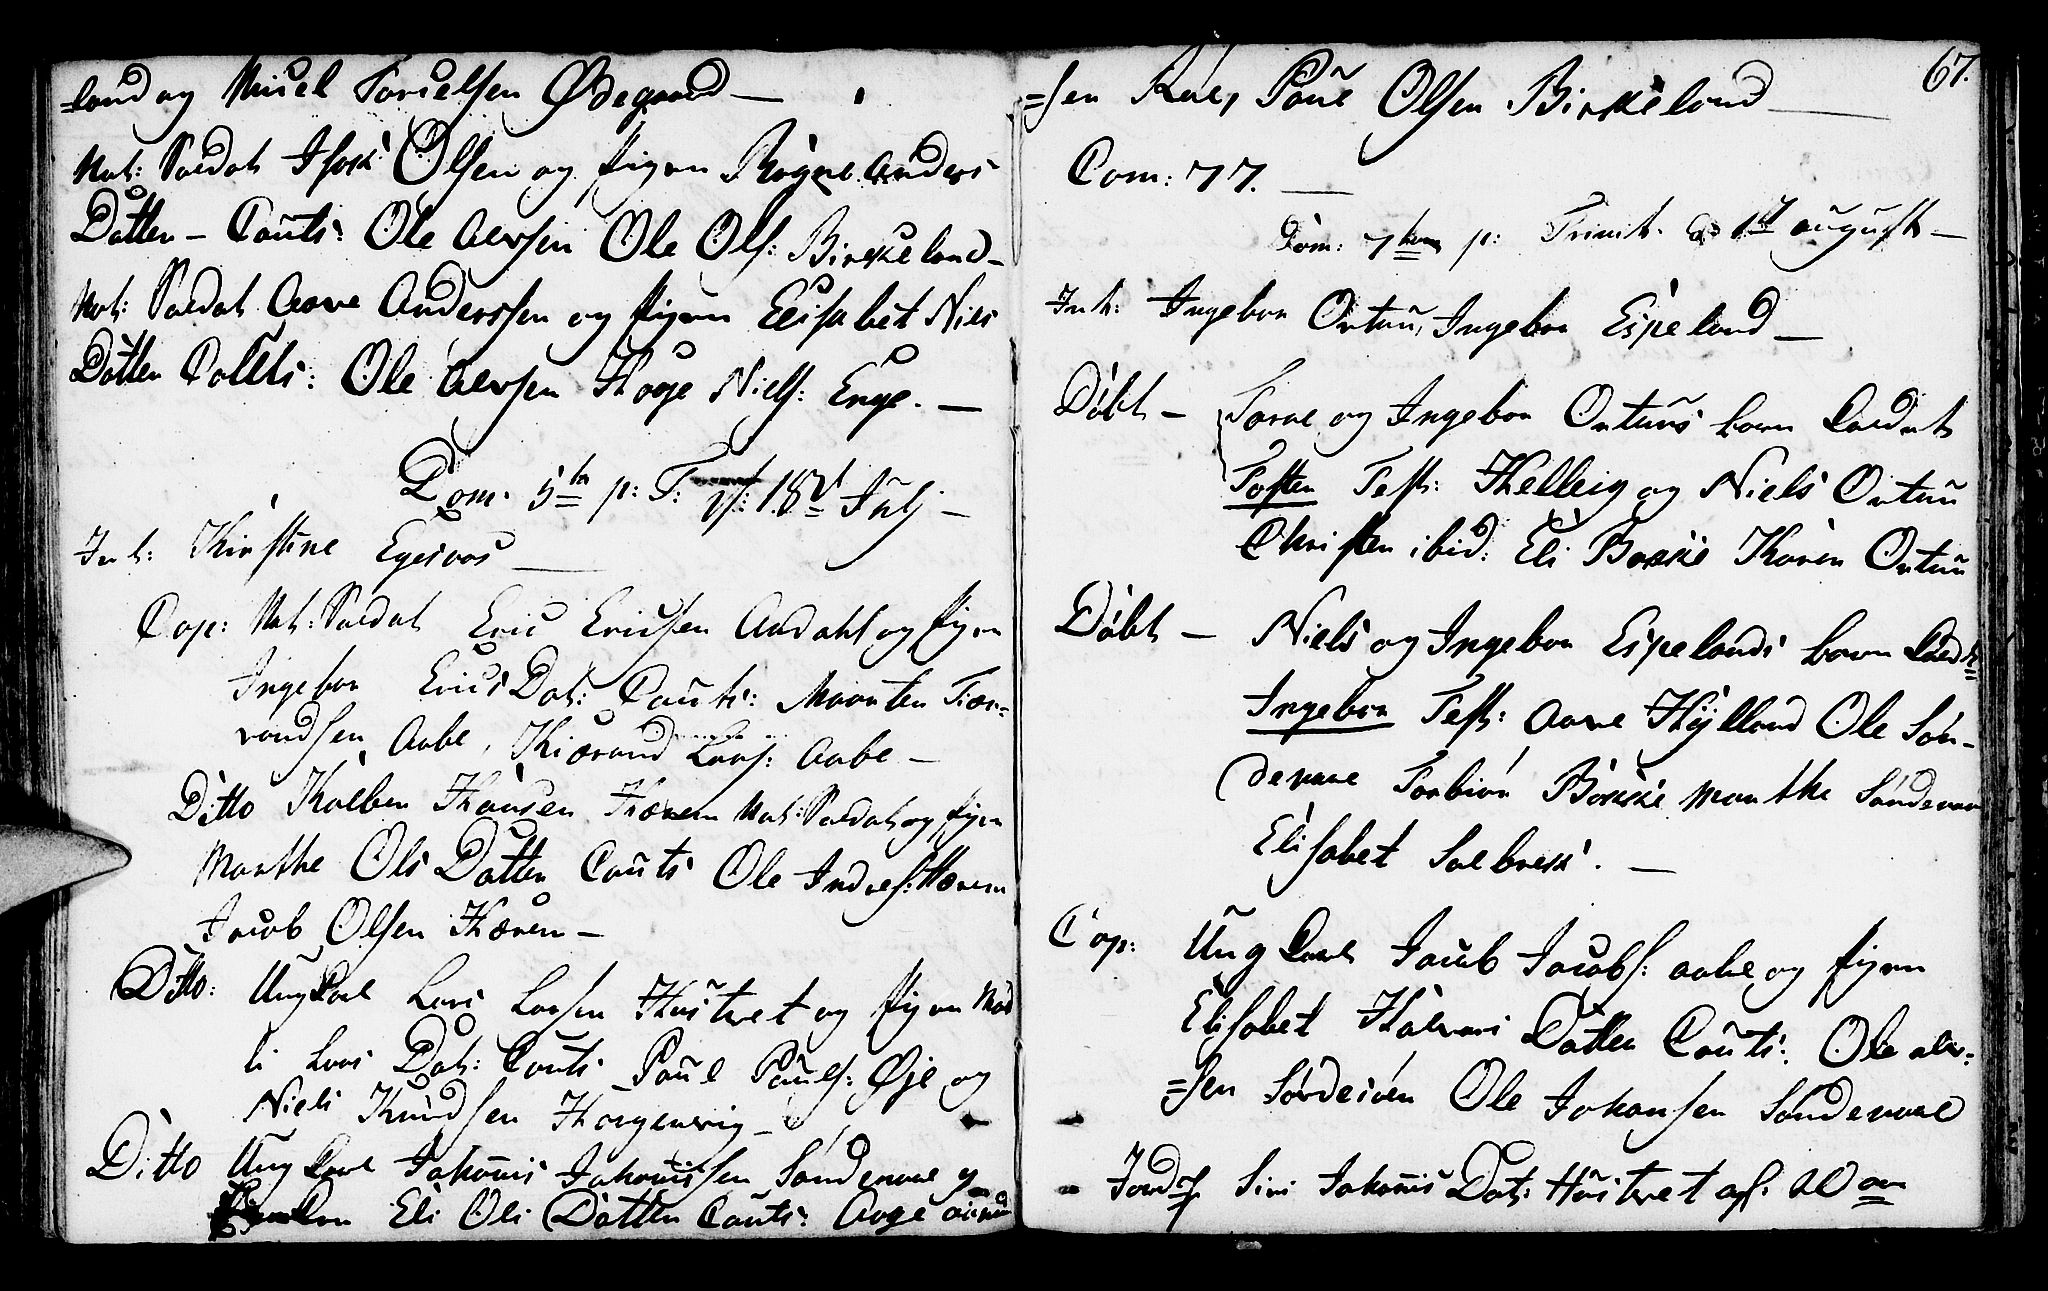 =land og Michel Torielsen Ødegaard —
Nat: Soldat Isach Olsen og pigen Rògne Anders
Datter – Cauts: Ole Aersen Ole Ols: Birkeland –
Nat: Soldat Aave Anderssen og pigen Elisabet Niels
Datter Cauts: Ole Aersen Hoge Niels: Enge. —
Dom. 5te p: T: d: 18de Julj –
Int: Kirstine Egesvos —
Cop: Nat: Soldat Eric Ericsen Aadahl og pigen
Ingebor Erics Dat: Cauts: Maarten Tiæ=
randsen Aabe, Kiærand Lars: Aabe –
Ditto Kolben Hansen Hæren Nat: Soldat og pigen
Marthe Ols Datter Cauts Ole Indres: Hæren
Jacob Olsen Hæren –
Ditto: Ung Carl Lars Larsen Hustvet og pigen Ma
li Lars Dat: Cauts Poul Pouls: Øje og
Niels Knudsen Horgenvig –
Ditto Ung Carl Johannis Johannissen Søndenaae og
Eli Ols Datter Cauts: Aage
67.
=sen Poul Olsen Birkeland —
Com: 77. —
Dom: 7tem p: Trinit. d 1t august –
Int: Ingebor Ortun, Ingebor Espeland —
Døbt – Torne og Ingebor Ortuns barn kaldet
Tosten Test: Kelleig og Niels Ortun
Christen ibid: Eli Bokke Karen Ortun
Døbt – Niels og Ingebor Espelands barn kaldt=
Ingebor Test: Aave Hylland Ole Søn-
denaae Torbiør Bokke Marthe Søndenaae
Elisabet Solbrek. —
Cop: Ung Carl Jacob Jacobs: aabe og pigen
Elisabet Halvars Datter Cauts: Ole aler=
=sen Sørdesøen Ole Johansen Søndenaae
Jord Siri Johannis Dat: Hustvet